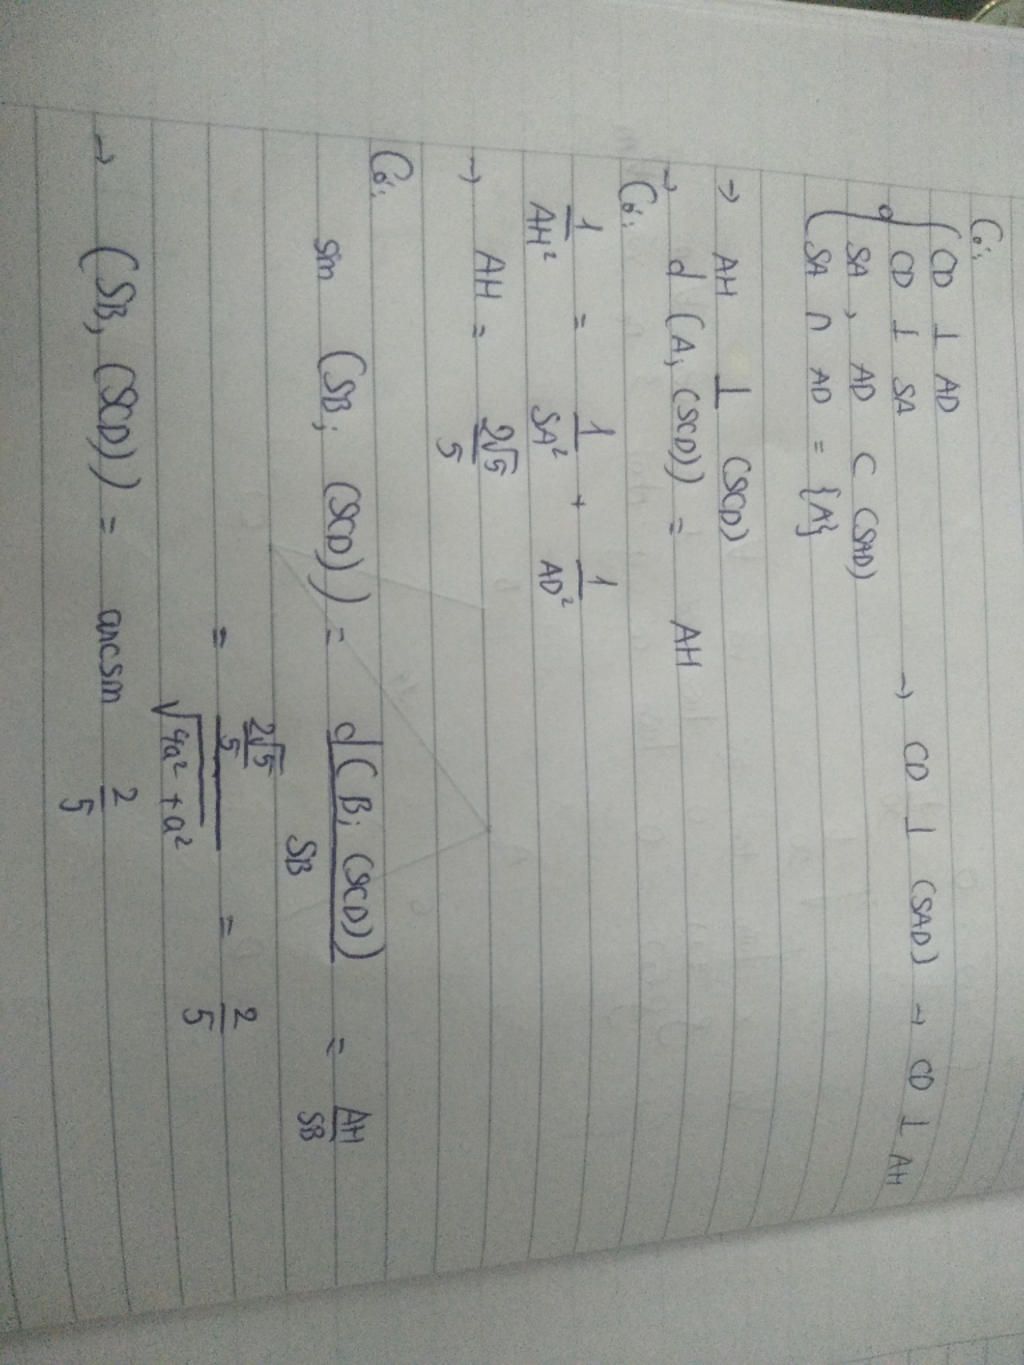 Có:
CD ⊥ AD
CD ⊥ SA → CD ⊥ (SAD) → CD ⊥ AH
SA, AD ⊂ (SAD)
SA ∩ AD = {A}
→ AH ⊥ (SCD)
→ d (A; (SCD)) = AH
Có:
1/AH² = 1/SA² + 1/AD²
→ AH = 2√5/5
Có:
sin (SB; (SCD)) = d(B; (SCD))/SB = AH/SB
= (2√5/5)/√(4a² + a²) = 2/5
→ (SB, (SCD)) = arcsin 2/5